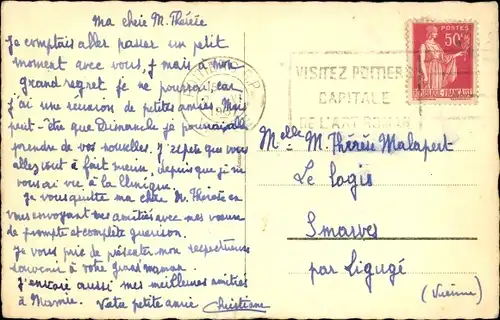 Ma chère M. Thérèse
Je comptais aller passer un petit
moment avec vous, mais à mon
grand regret je ne pourrai, car
j'ai une réunion de petites amies. Mais
peut-être que Dimanche je pourrai aller
prendre de vos nouvelles. J'espère que vous
allez tout à fait mieux, depuis que je ne
vous ai vue à la Clinique.
Je vous quitte ma chère M. Thérèse en
vous envoyant mes amitiés avec mes vœux
de prompte et complète guérison.
Je vous prie de présenter mon respectueux
souvenir à votre grand'maman.
J'envoie aussi mes meilleures amitiés
à Mamie. Votre petite amie Christiane
POSTES
50c
REPUBLIQUE FRANÇAISE
VISITEZ POITIERS
CAPITALE
DE L'ART ROMAN
Melle M. Thérèse Malapert
Le Logis
Smarves
par Ligugé
(Vienne)